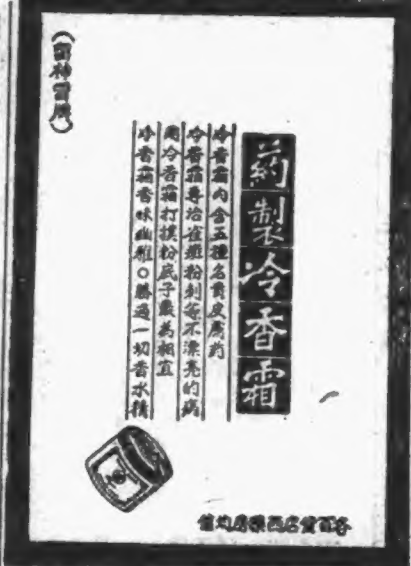 藥製冷香霜
冷香霜內含五種名貴皮膚藥
冷香霜專治雀斑粉刺等不漂亮的病
用冷香霜打撲粉底子最為相宜
冷香霜香味幽雅○勝過一切香水精
各百貨店西藥房均售